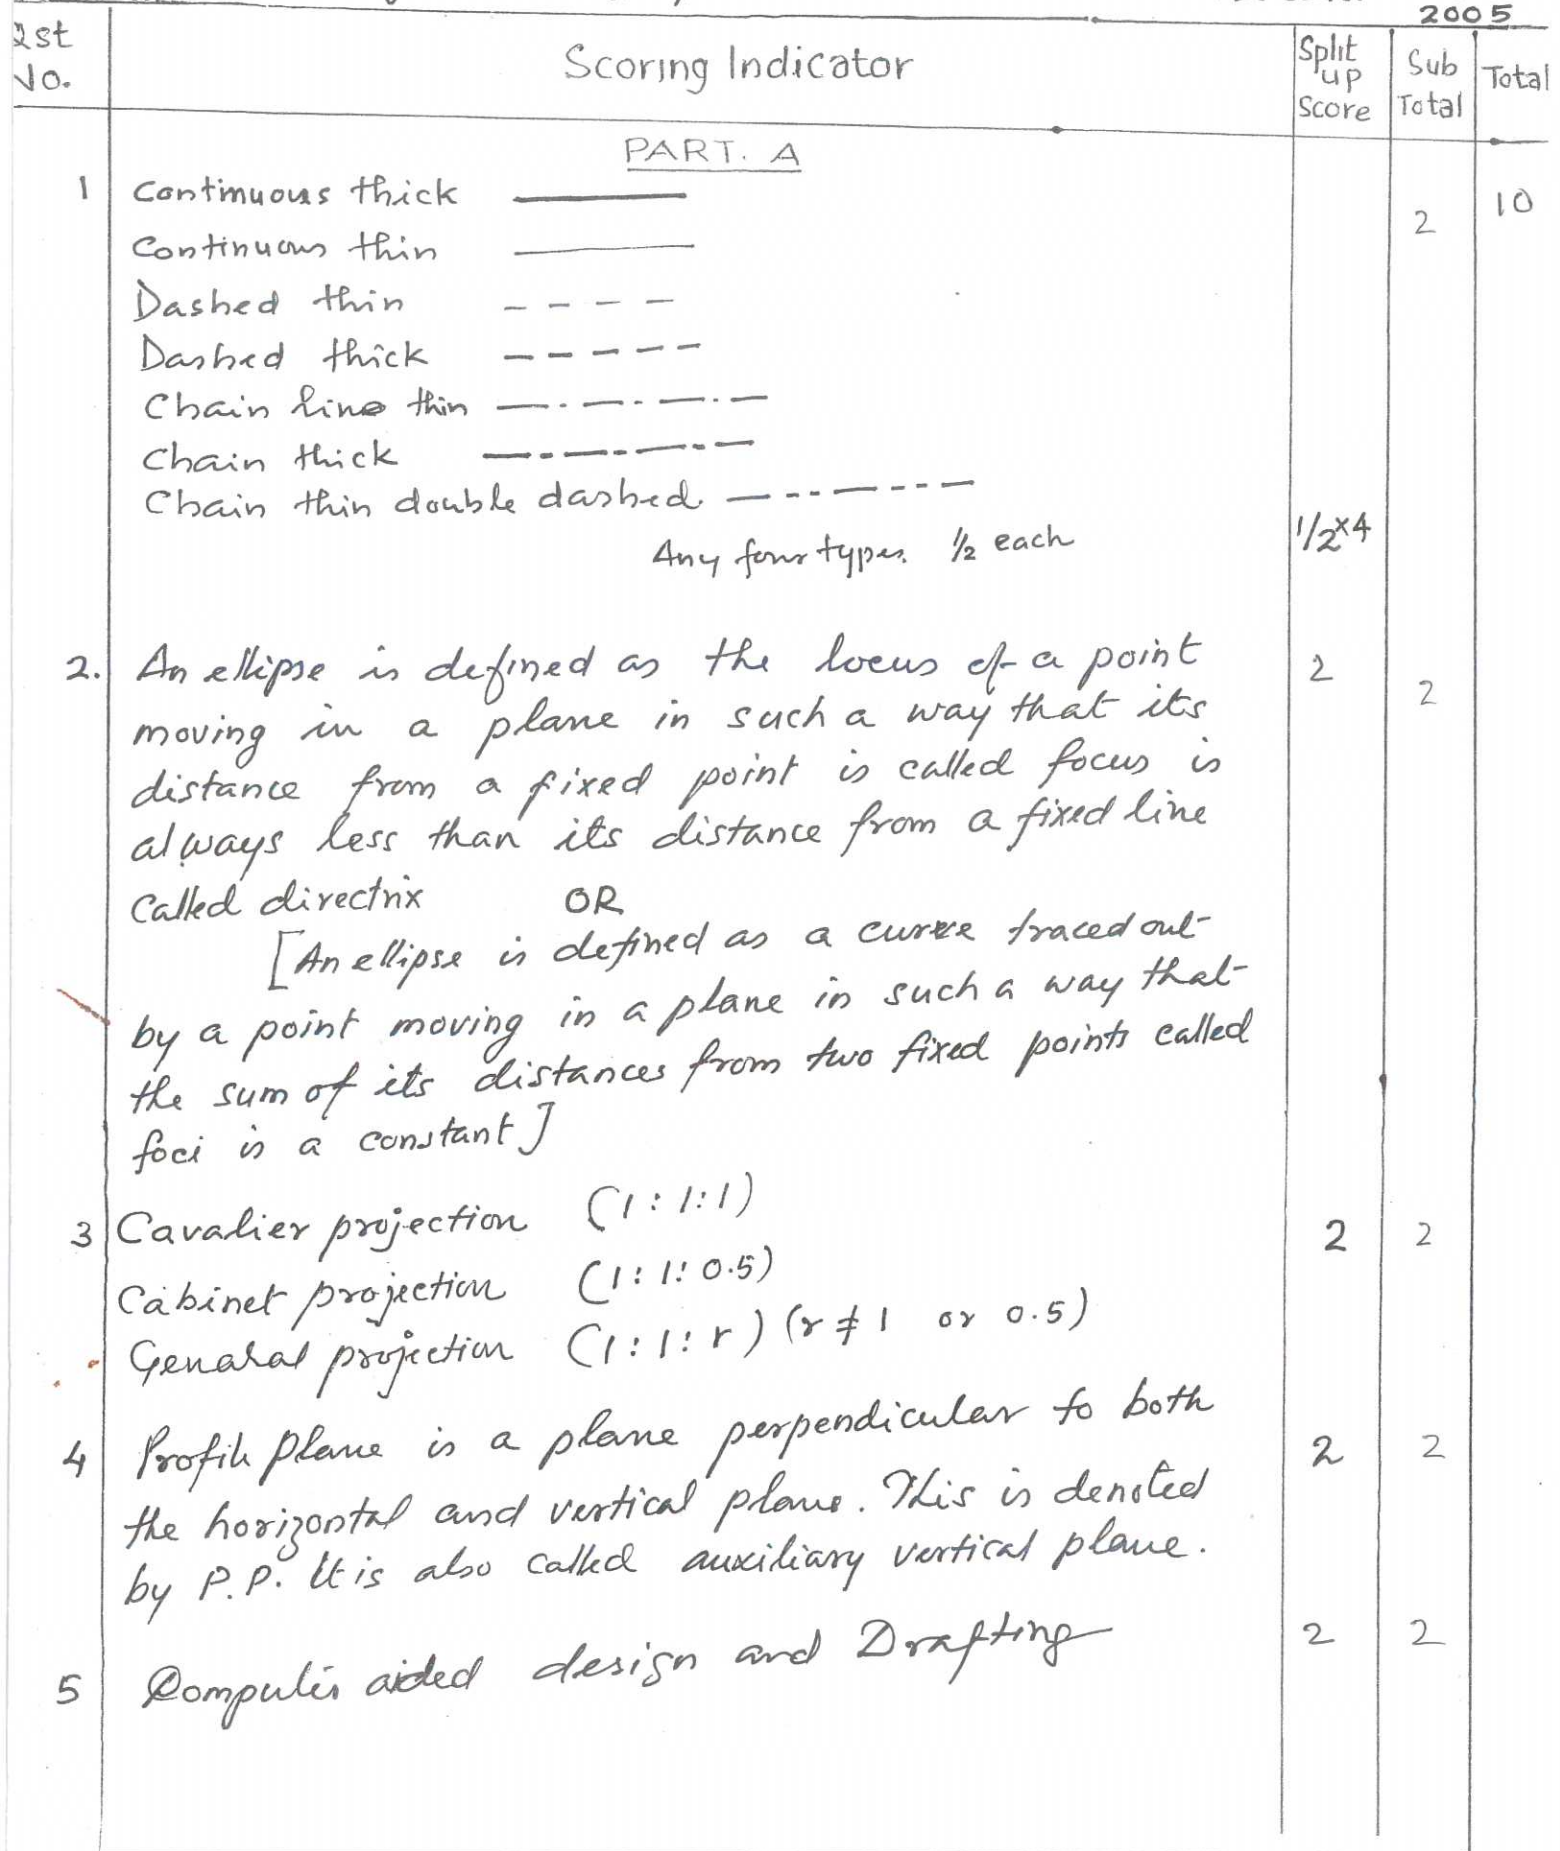 2005
Qst No.
Scoring Indicator
Split up Score
Sub Total
Total
PART. A
1 Continuous thick
2 10
Continuous thin
Dashed thin
Dashed thick
Chain line thin
Chain thick
Chain thin double dashed.
Any four types. 1/2 each 1/2×4
2. An ellipse is defined as the locus of a point 2 2
moving in a plane in such a way that its
distance from a fixed point is called focus is
always less than its distance from a fixed line
called directrix OR
[An ellipse is defined as a curve traced out
by a point moving in a plane in such a way that
the sum of its distances from two fixed points called
foci is a constant]
3 Cavalier projection (1:1:1) 2 2
Cabinet projection (1:1:0.5)
Genaral projection (1:1:r) (r≠1 or 0.5)
4 Profile plane is a plane perpendicular to both 2 2
the horizontal and vertical plane. This is denoted
by P.P. It is also called auxiliary vertical plane.
5 Computer aided design and Drafting 2 2